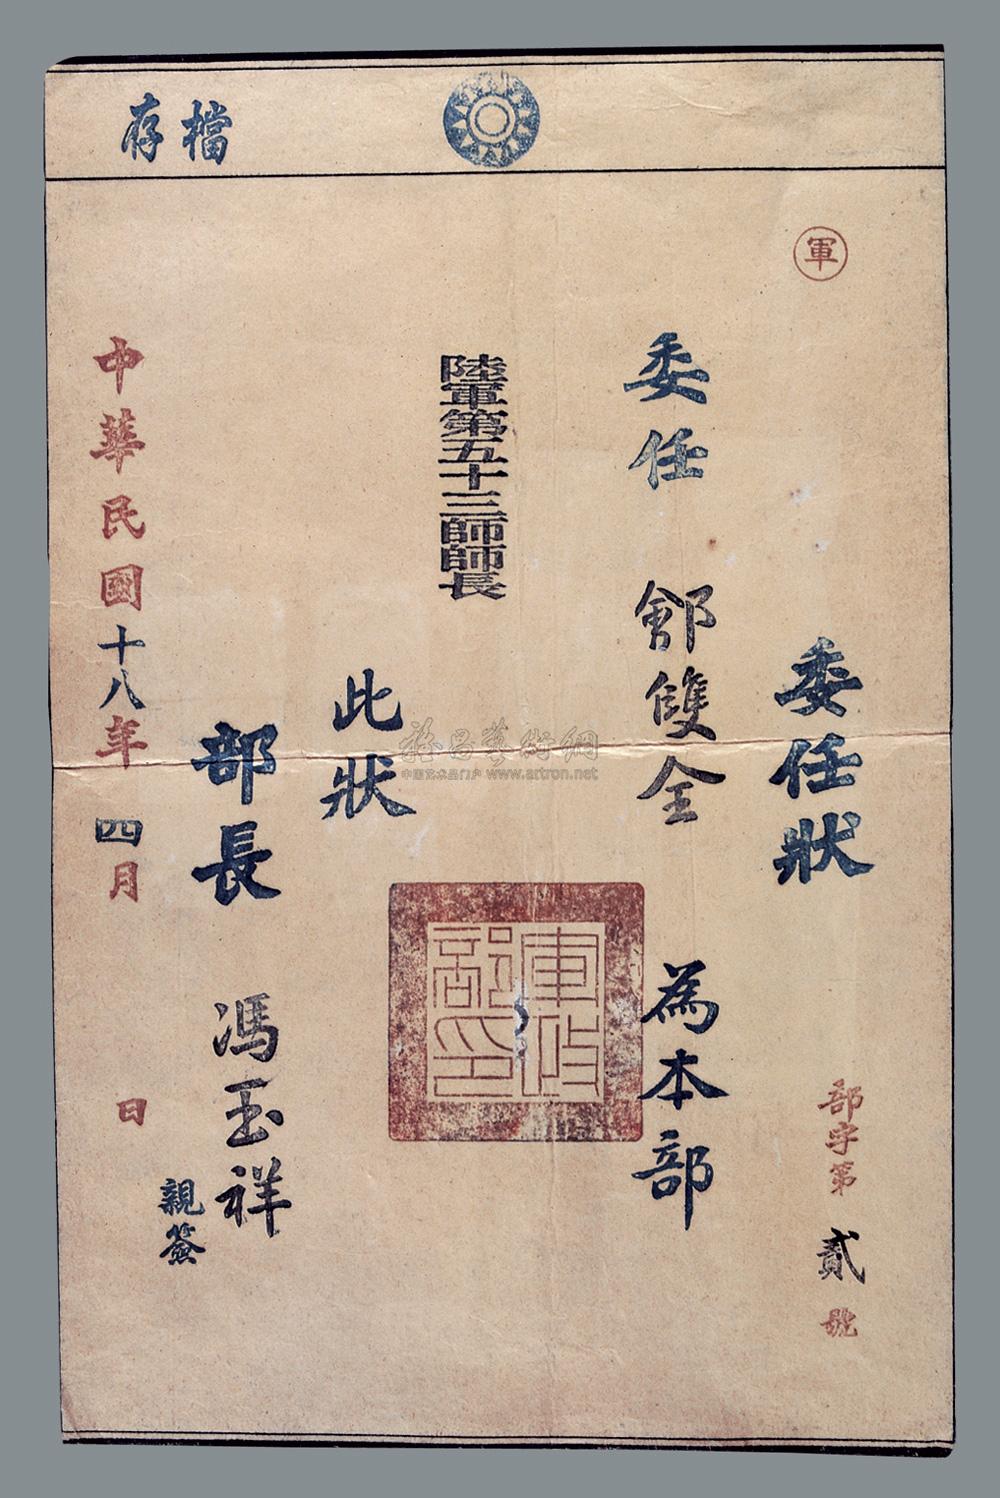 檔存
軍
委任狀
部字第貳號
委任 鄧雙全 為本部
陸軍第五十三師師長
此狀
部長 馮玉祥
親簽
中華民國十八年四月 日
軍政部印
雅昌藝術網
中国艺术品门户 www.artron.net